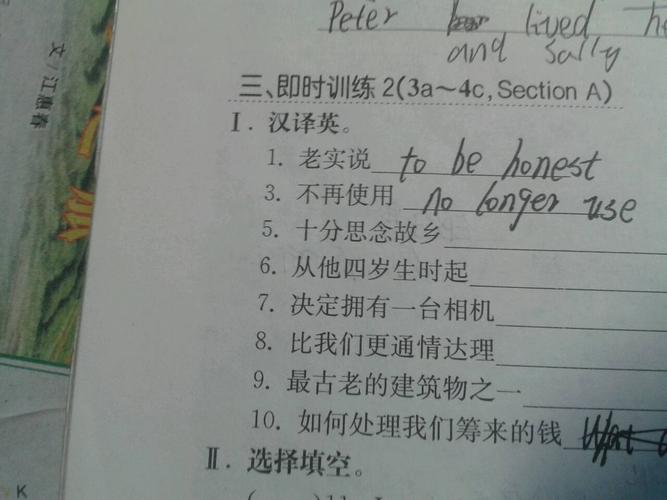 Peter lived
and Sally
三、即时训练 2(3a~4c, Section A)
Ⅰ. 汉译英。
1. 老实说 to be honest
3. 不再使用 no longer use
5. 十分思念故乡
6. 从他四岁生时起
7. 决定拥有一台相机
8. 比我们更通情达理
9. 最古老的建筑物之一
10. 如何处理我们筹来的钱
Ⅱ. 选择填空。
文/江惠春
K